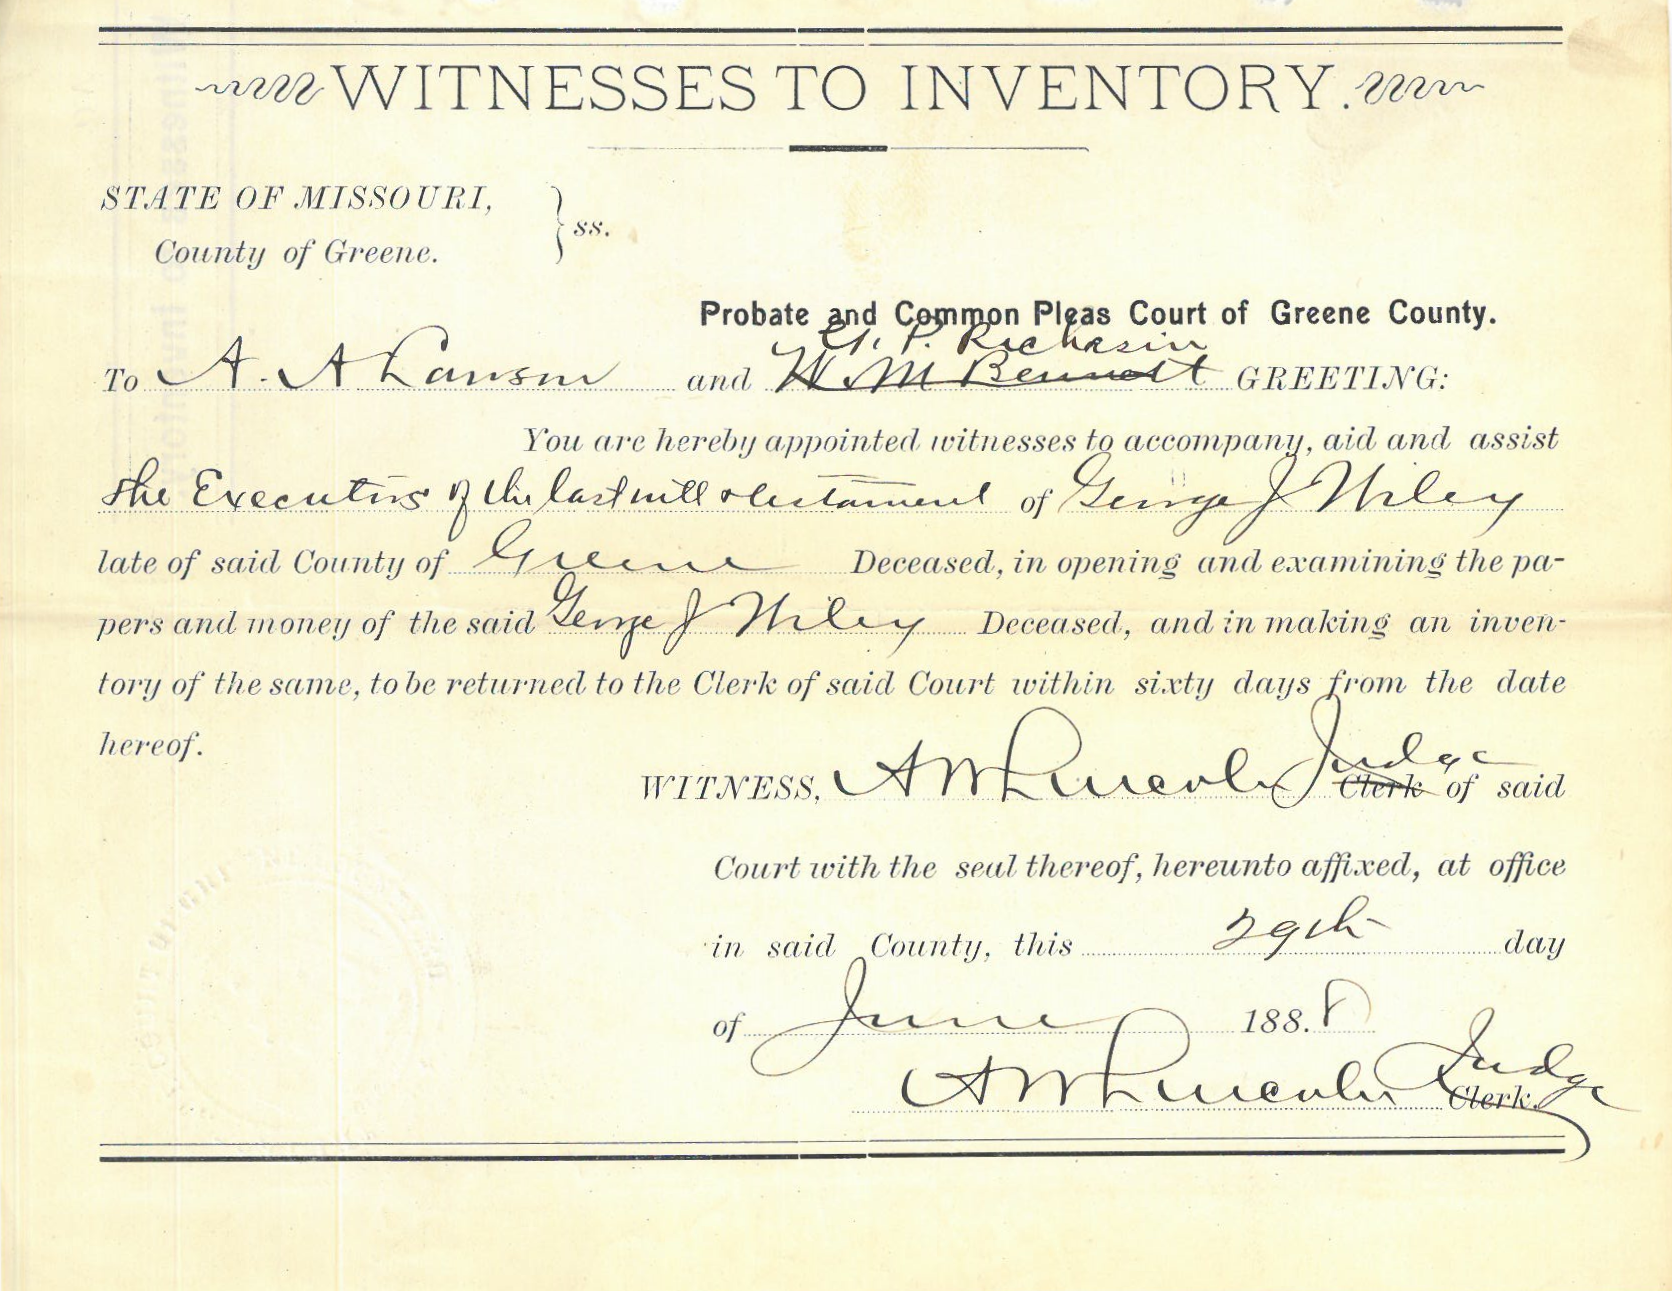 WITNESSES TO INVENTORY.
STATE OF MISSOURI,
County of Greene.
} ss.
Probate and Common Pleas Court of Greene County.
G. P.
To A. A Lawson and W. M Bennett GREETING:
You are hereby appointed witnesses to accompany, aid and assist
the Executors of the last will & testament of George J Wiley
late of said County of Greene Deceased, in opening and examining the pa-
pers and money of the said George J Wiley Deceased, and in making an inven-
tory of the same, to be returned to the Clerk of said Court within sixty days from the date
hereof.
Judge
WITNESS, A W Lincoln Clerk of said
Court with the seal thereof, hereunto affixed, at office
in said County, this 29th day
of June 188.8
Judge
A W Lincoln Clerk.